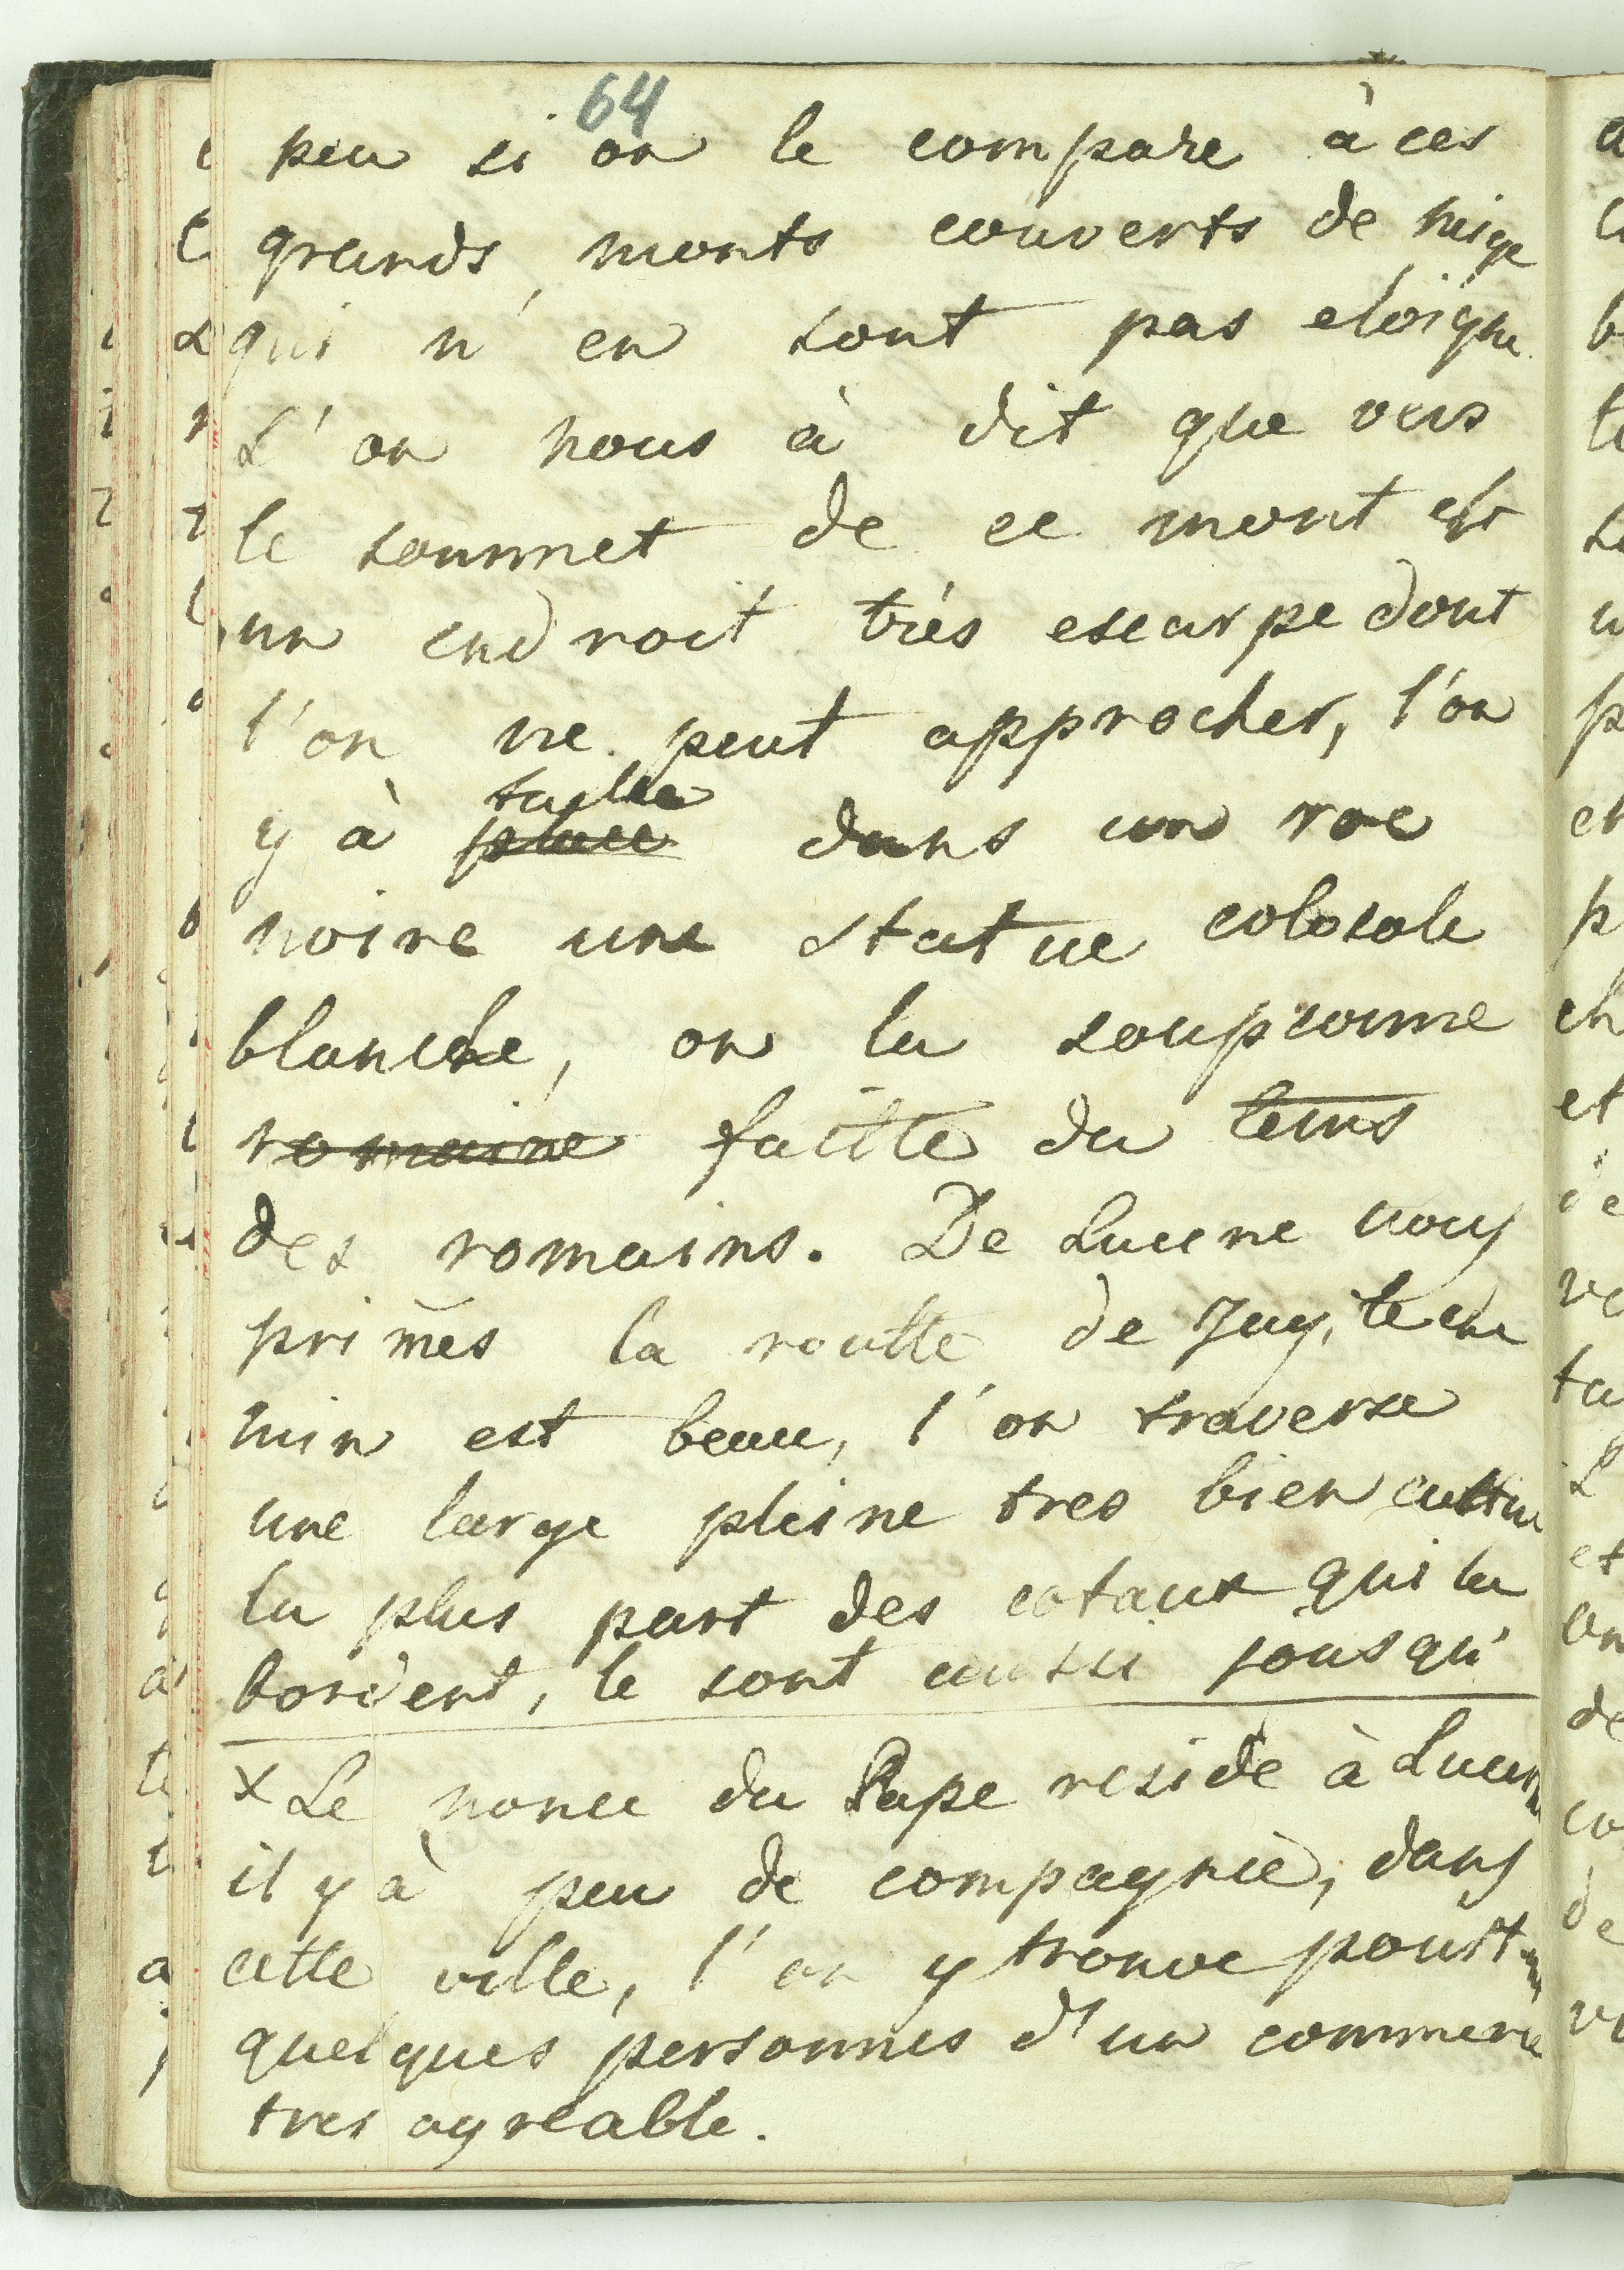 64
peu si on le compare à ces
grands monts couverts de neige
qui n'en sont pas eloigné
L'on nous à dit que vers
le sommet de ce mont est
un endroit trés escarpe dont
l'on ne peut approcher, l'on
taillee
y à place dans un roc
noire une statue colosale
blanche, on la soupconne
romaine faitte du tems
des romains. De Lucerne nous
primes la routte de Zug, le che
min est beau, l'on traverse
une large pleine tres bien cultive
la plus part des cotaux qui la
bordent, le sont aussi jousqu'
x Le nonce du Pape reside à Lucerne
il y à peu de compagnie, dans
cette ville, l'on y trouve pourt
quelques personnes d'un commerce
tres agreable.